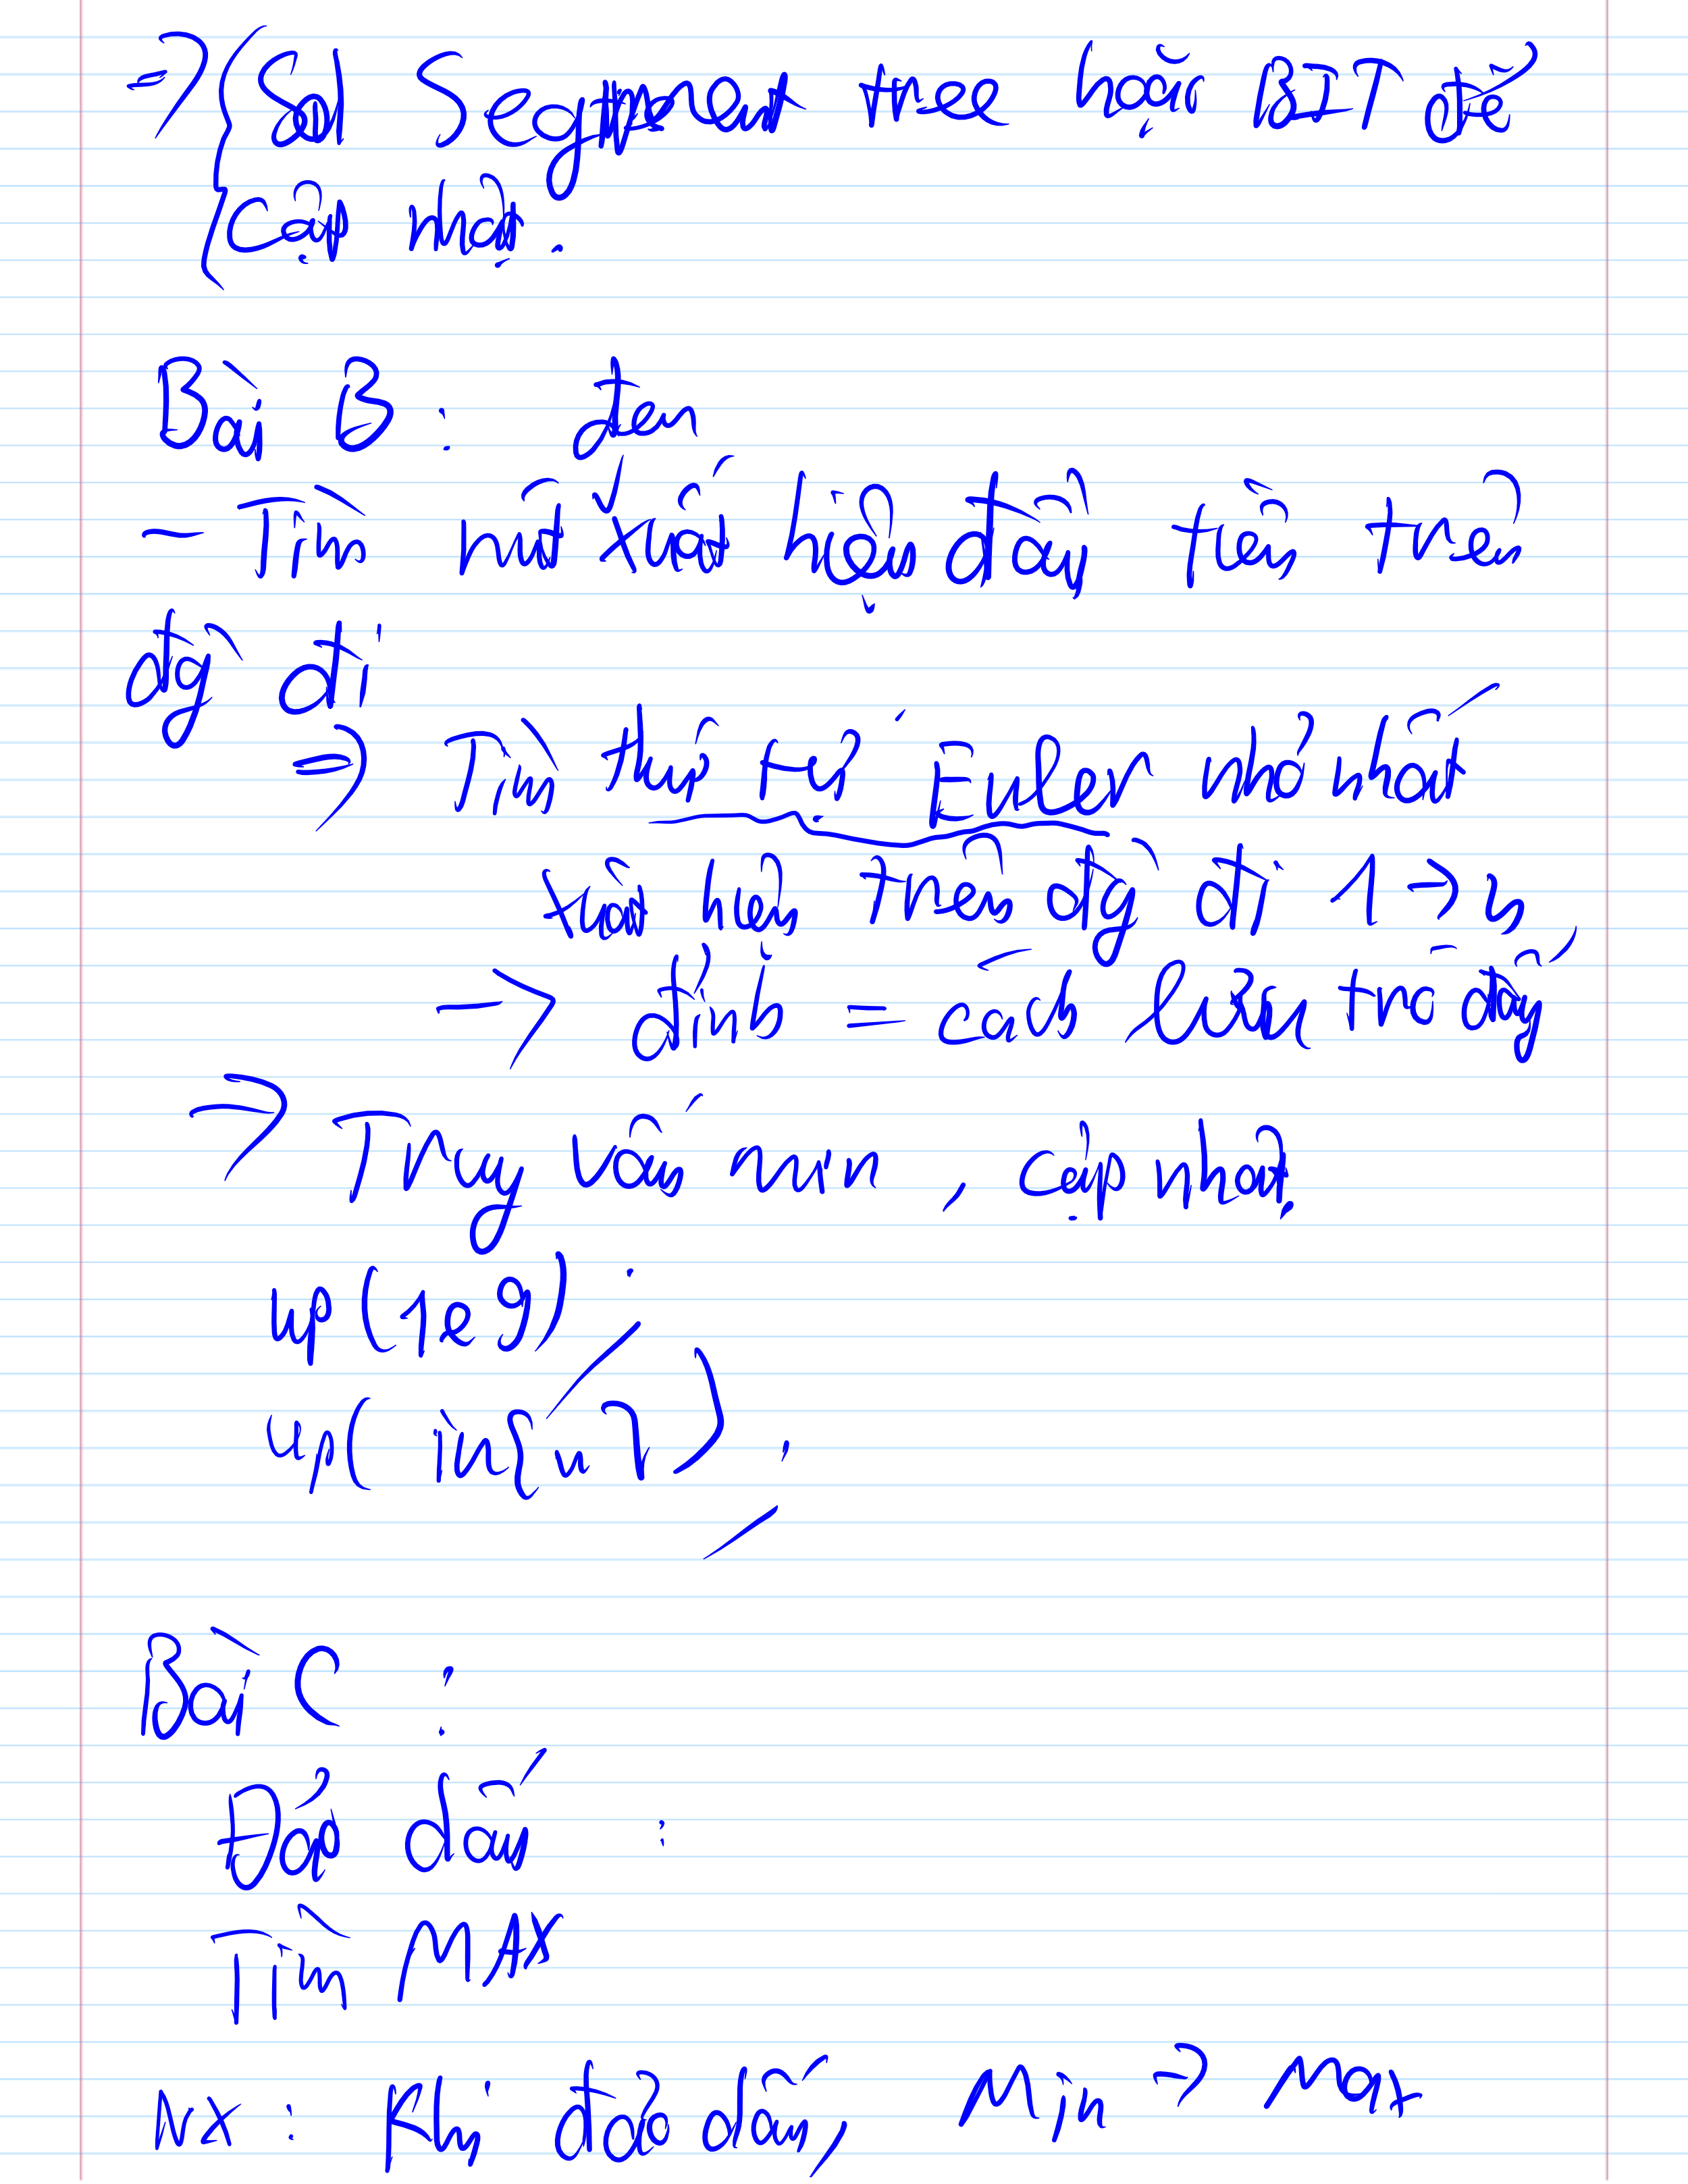 => Sd Segment tree hoặc BIT để
cập nhật.
Bài B: đen
- Tìm nút xuất hiện đầu tiên trên
đg đi
=> Tìm thứ tự Euler nhỏ nhất
xuất hiện trên đg đi 1 -> u
-> đỉnh = cách lưu trữ đấy
=> Truy vấn min, cập nhật
up(1e9);
up(in[u]);
Bài C:
Đảo dấu:
Tìm MAX
NX: Khi đảo dấu, Min -> Max